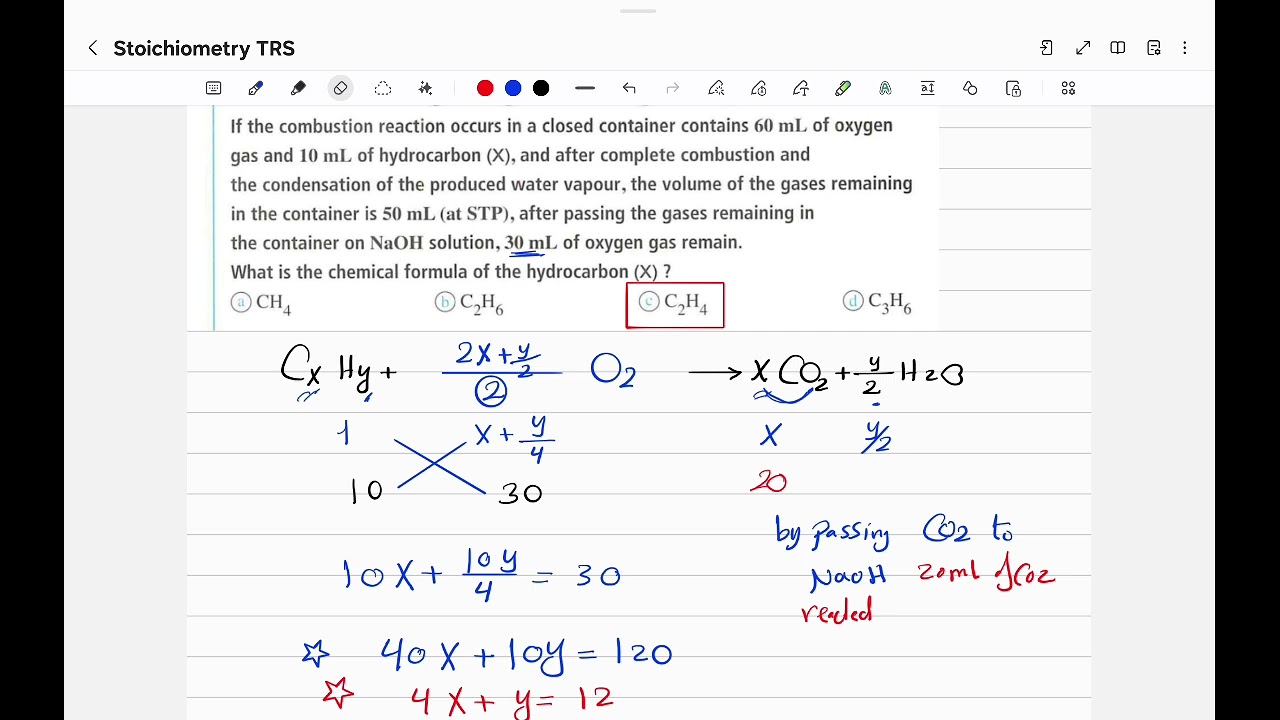 Stoichiometry TRS
If the combustion reaction occurs in a closed container contains 60 mL of oxygen
gas and 10 mL of hydrocarbon (X), and after complete combustion and
the condensation of the produced water vapour, the volume of the gases remaining
in the container is 50 mL (at STP), after passing the gases remaining in
the container on NaOH solution, 30 mL of oxygen gas remain.
What is the chemical formula of the hydrocarbon (X) ?
a CH4 b C2H6 c C2H4 d C3H6
CxHy + (2x+y/2)/2 O2 → xCO2 + y/2 H2O
1 x + y/4 x y/2
10 30 20
by passing CO2 to
10x + 10y/4 = 30 NaOH 20ml of CO2
reacted
☆ 40x + 10y = 120
☆ 4x + y = 12